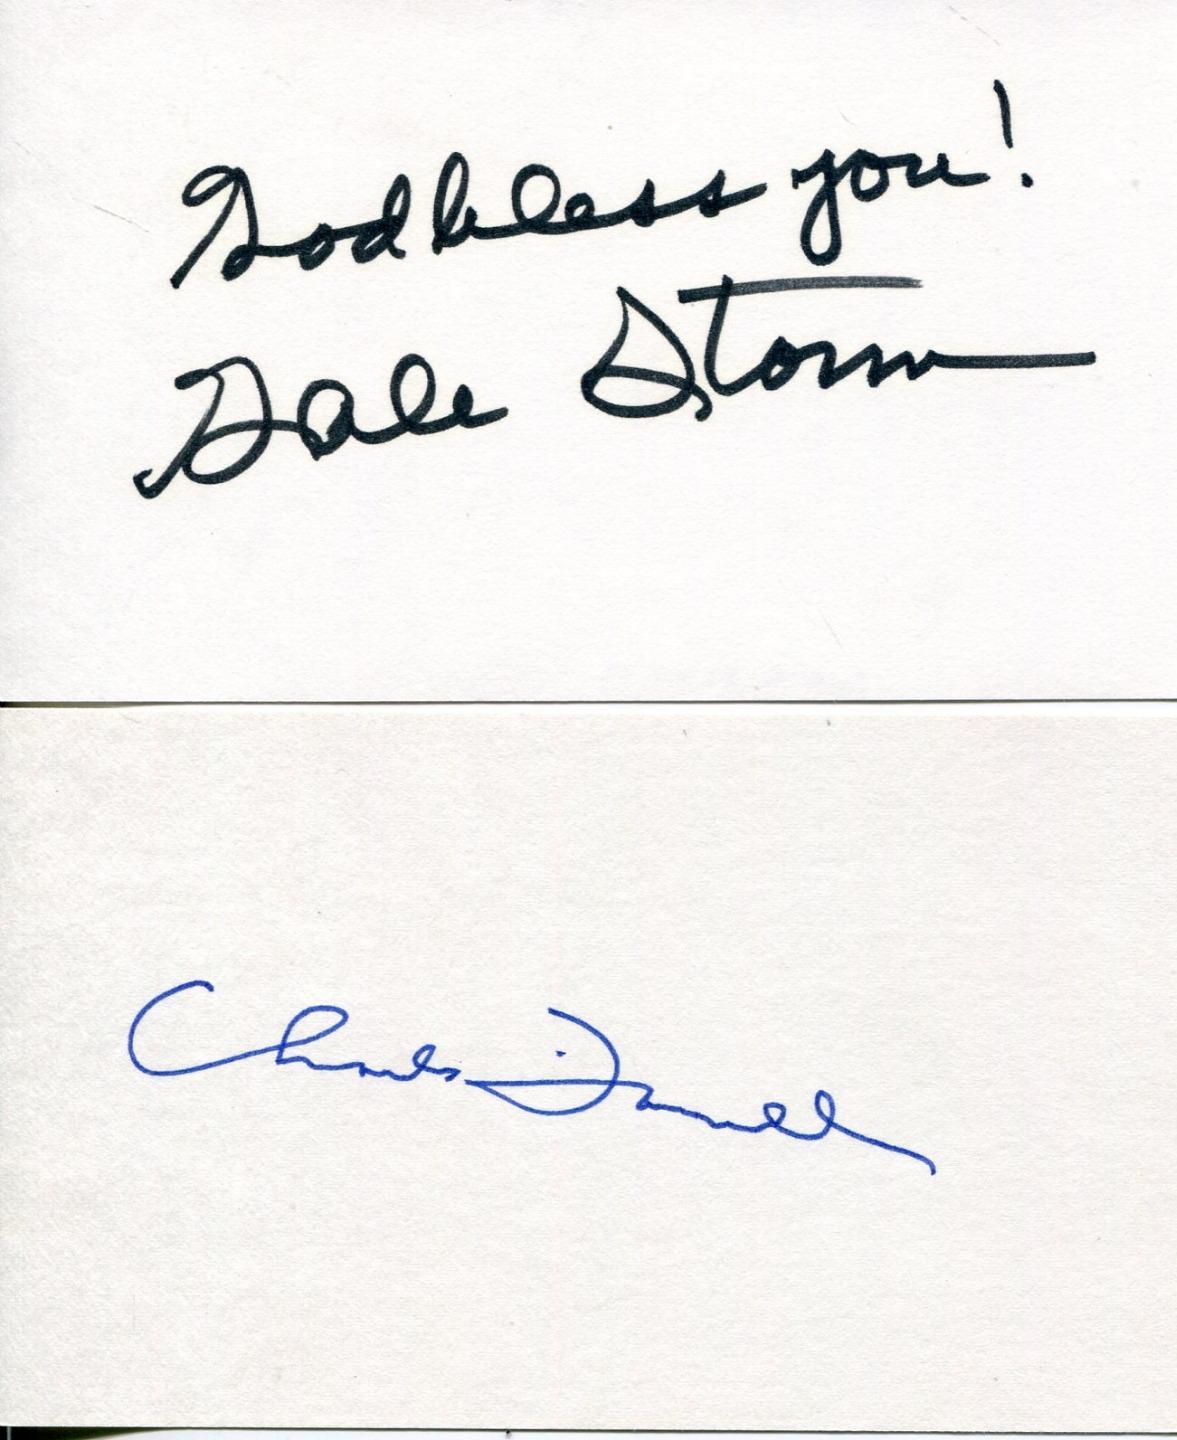 God bless you!
Gale Storm
Charles Farrell